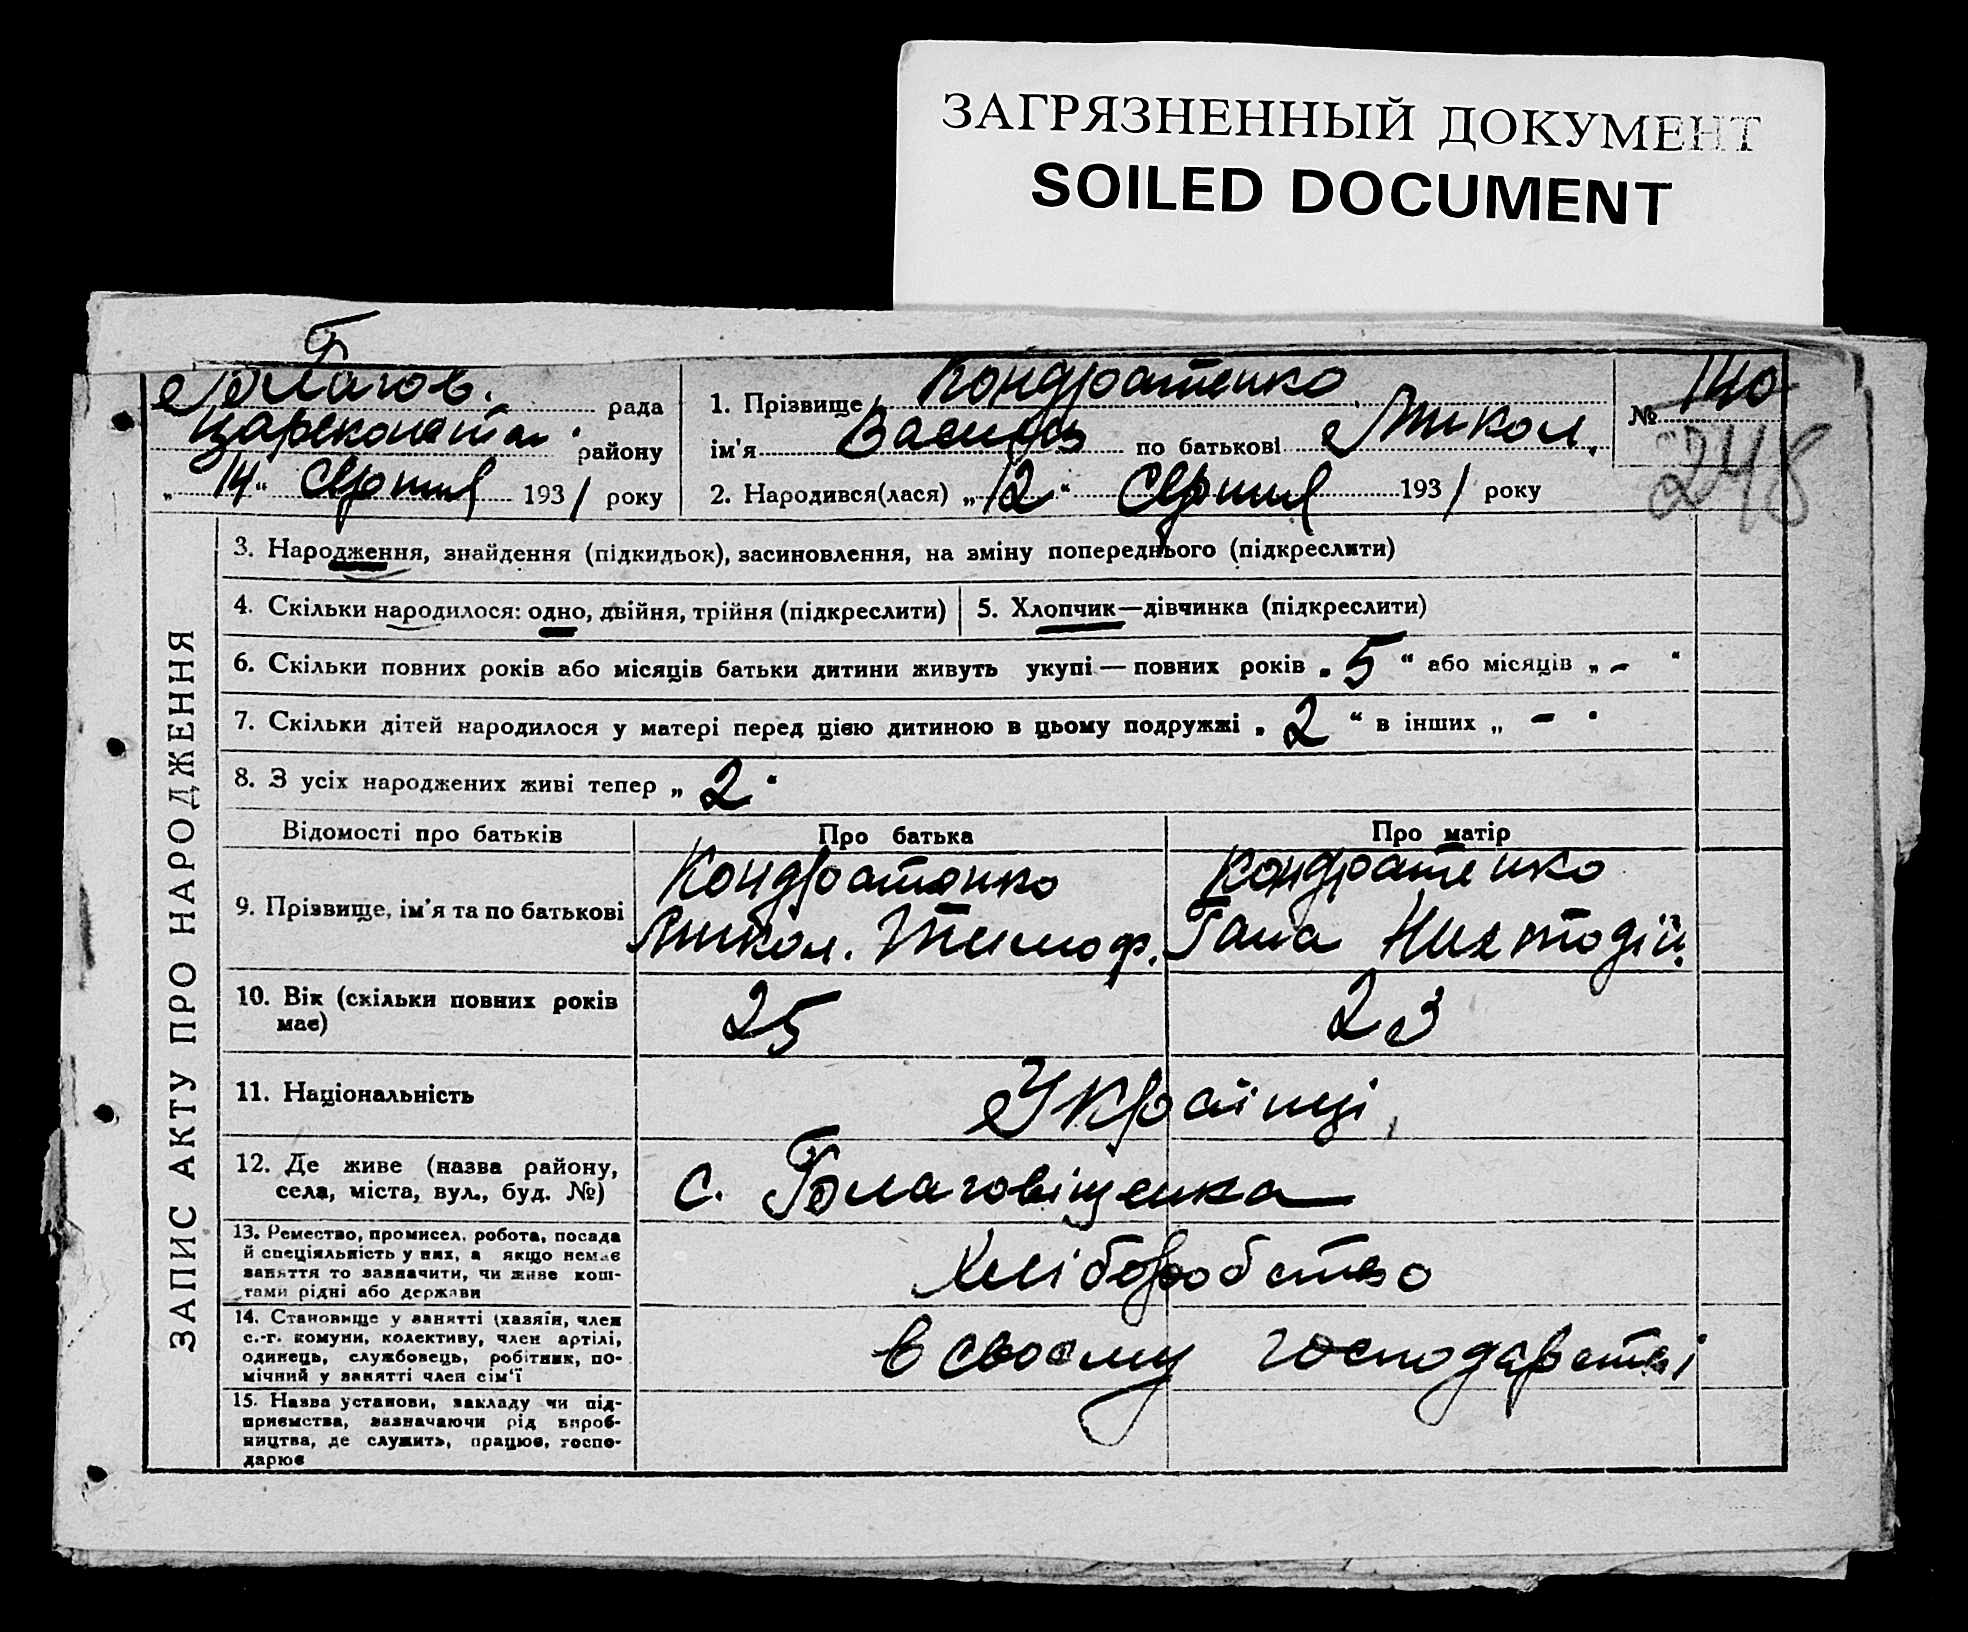 ЗАГРЯЗНЕННЫЙ ДОКУМЕНТ
SOILED DOCUMENT
Благов. рада
Царекокстан. району
„14“ Серпня 1931 року
1. Прізвище Кондратенко
ім'я Василь по батькові Микол.
2. Народився(лася) „12“ Серпня 1931 року
№ 140
248
ЗАПИС АКТУ ПРО НАРОДЖЕННЯ
3. Народження, знайдення (підкидьок), засиновлення, на зміну попереднього (підкреслити)
4. Скільки народилося: одно, двійня, трійня (підкреслити)
5. Хлопчик—дівчинка (підкреслити)
6. Скільки повних років або місяців батьки дитини живуть укупі — повних років „5“ або місяців „-“
7. Скільки дітей народилося у матері перед цією дитиною в цьому подружжі „2“ в інших „-“
8. З усіх народжених живі тепер „2“
Відомості про батьків Про батька Про матір
9. Прізвище, ім'я та по батькові
Кондратенко
Микол. Тимоф.
Кондратенко
Гана
10. Вік (скільки повних років
має)
25
23
11. Національність
Українці
12. Де живе (назва району,
села, міста, вул., буд. №)
с. Благовіщенка
13. Ремество, промисел, робота, посада
й спеціяльність у них, а якщо немає
заняття то зазначити, чи живе кош-
тами рідні або держави
Хліборобство
14. Становище у занятті (хазяїн, член
с.-г. комуни, колективу, член артілі,
одинець, службовець, робітник, по-
мічний у занятті член сім'ї
в своєму господарстві
15. Назва установи, закладу чи під-
приємства, зазначаючи рід вироб-
ництва, де служить, працює, госпо-
дарює